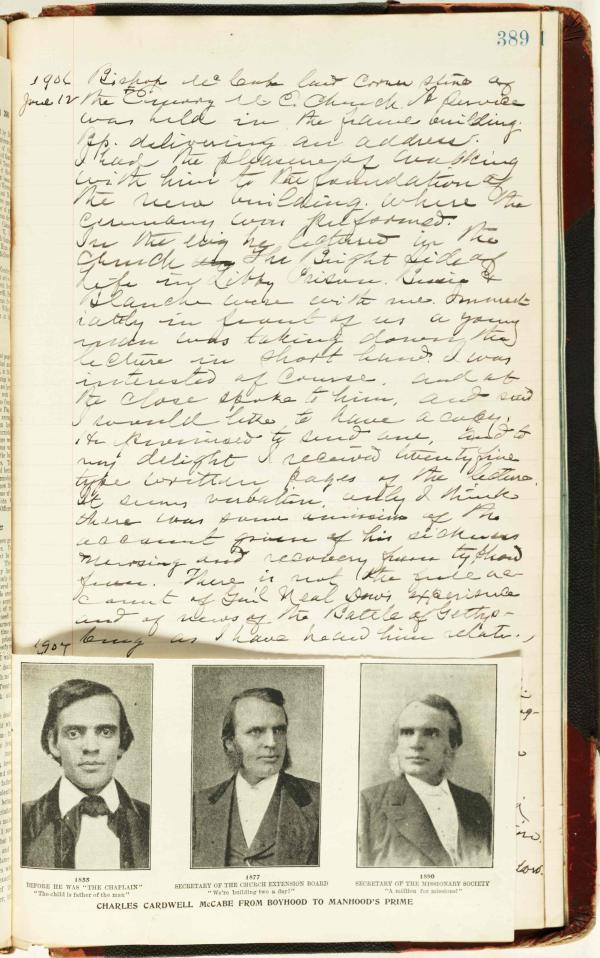 389
1906 Bishop McCabe laid corner stone of
June 12 the Emory M E. Church. A service
was held in the frame building.
Bp. delivering an address.
I had the pleasure of walking
with him to the foundation of
the new building. where the
ceremony was preformed.
In the evig he lectured in the
Church The Bright Side of
Life in Libby Prison. &
Blanche were with me. Immedi
iatly in front of us a young
man was taking down the
lecture in short hand. I was
interested of course. and at
the close spoke to him, and said
I would like to have a copy.
He promised to send one, and to
my delight I received twenty five
type written pages of the lecture.
It seems verbatim, only I think
there was some omission of the
account given of his sickness
nursing and recovery from typhoid
fever. There is not the full ac
count of Genl Neal Dows experience
and of news of the Battle of Gettys-
burg as I have heard him relate.
1907
1855
BEFORE HE WAS "THE CHAPLAIN"
"The child is father of the man"
1877
SECRETARY OF THE CHURCH EXTENSION BOARD
"We're building two a day!"
1890
SECRETARY OF THE MISSIONARY SOCIETY
"A million for missions!"
CHARLES CARDWELL McCABE FROM BOYHOOD TO MANHOOD'S PRIME